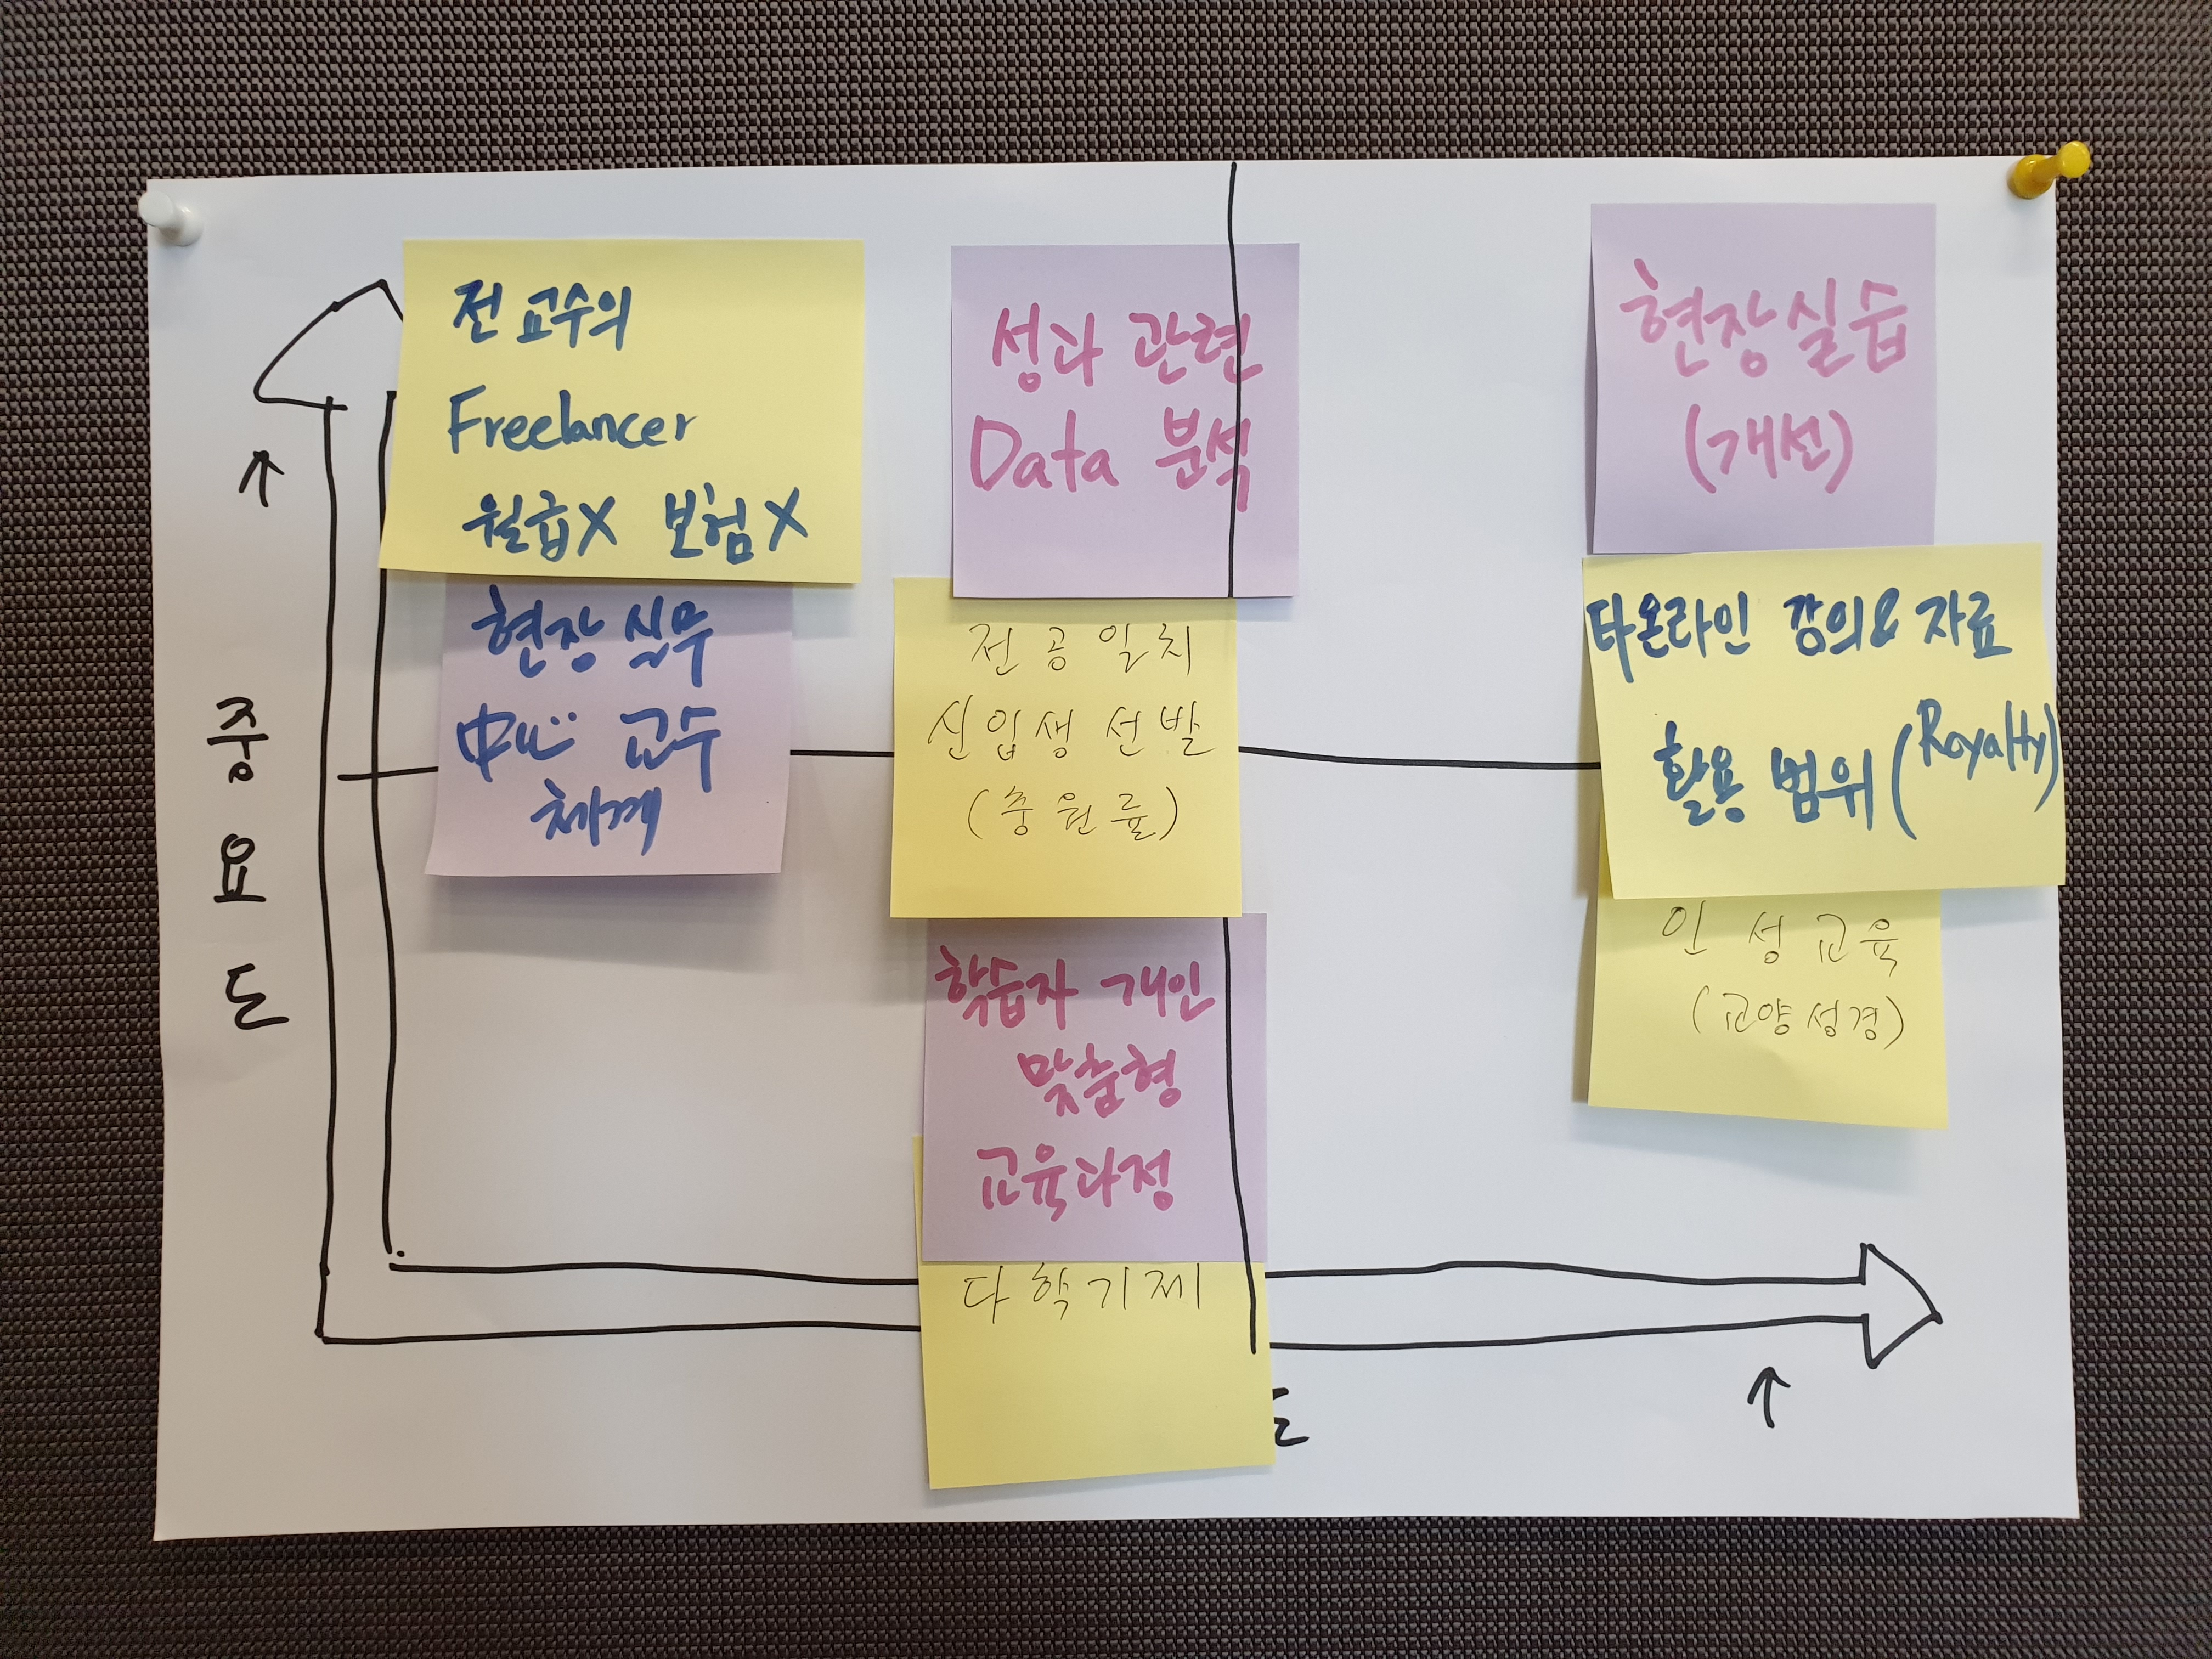 전 교수의
Freelancer
월급X 보험X
성과 관련
Data 분석
현장실습
(개선)
현장 실무
교수
체계
전공일치
신입생 선발
(충원률)
타온라인 강의& 자료
활용 범위 (Royalty)
인성교육
(교양성경)
학습자 개인
맞춤형
교육과정
다학기제
↑
중
요
도
↑